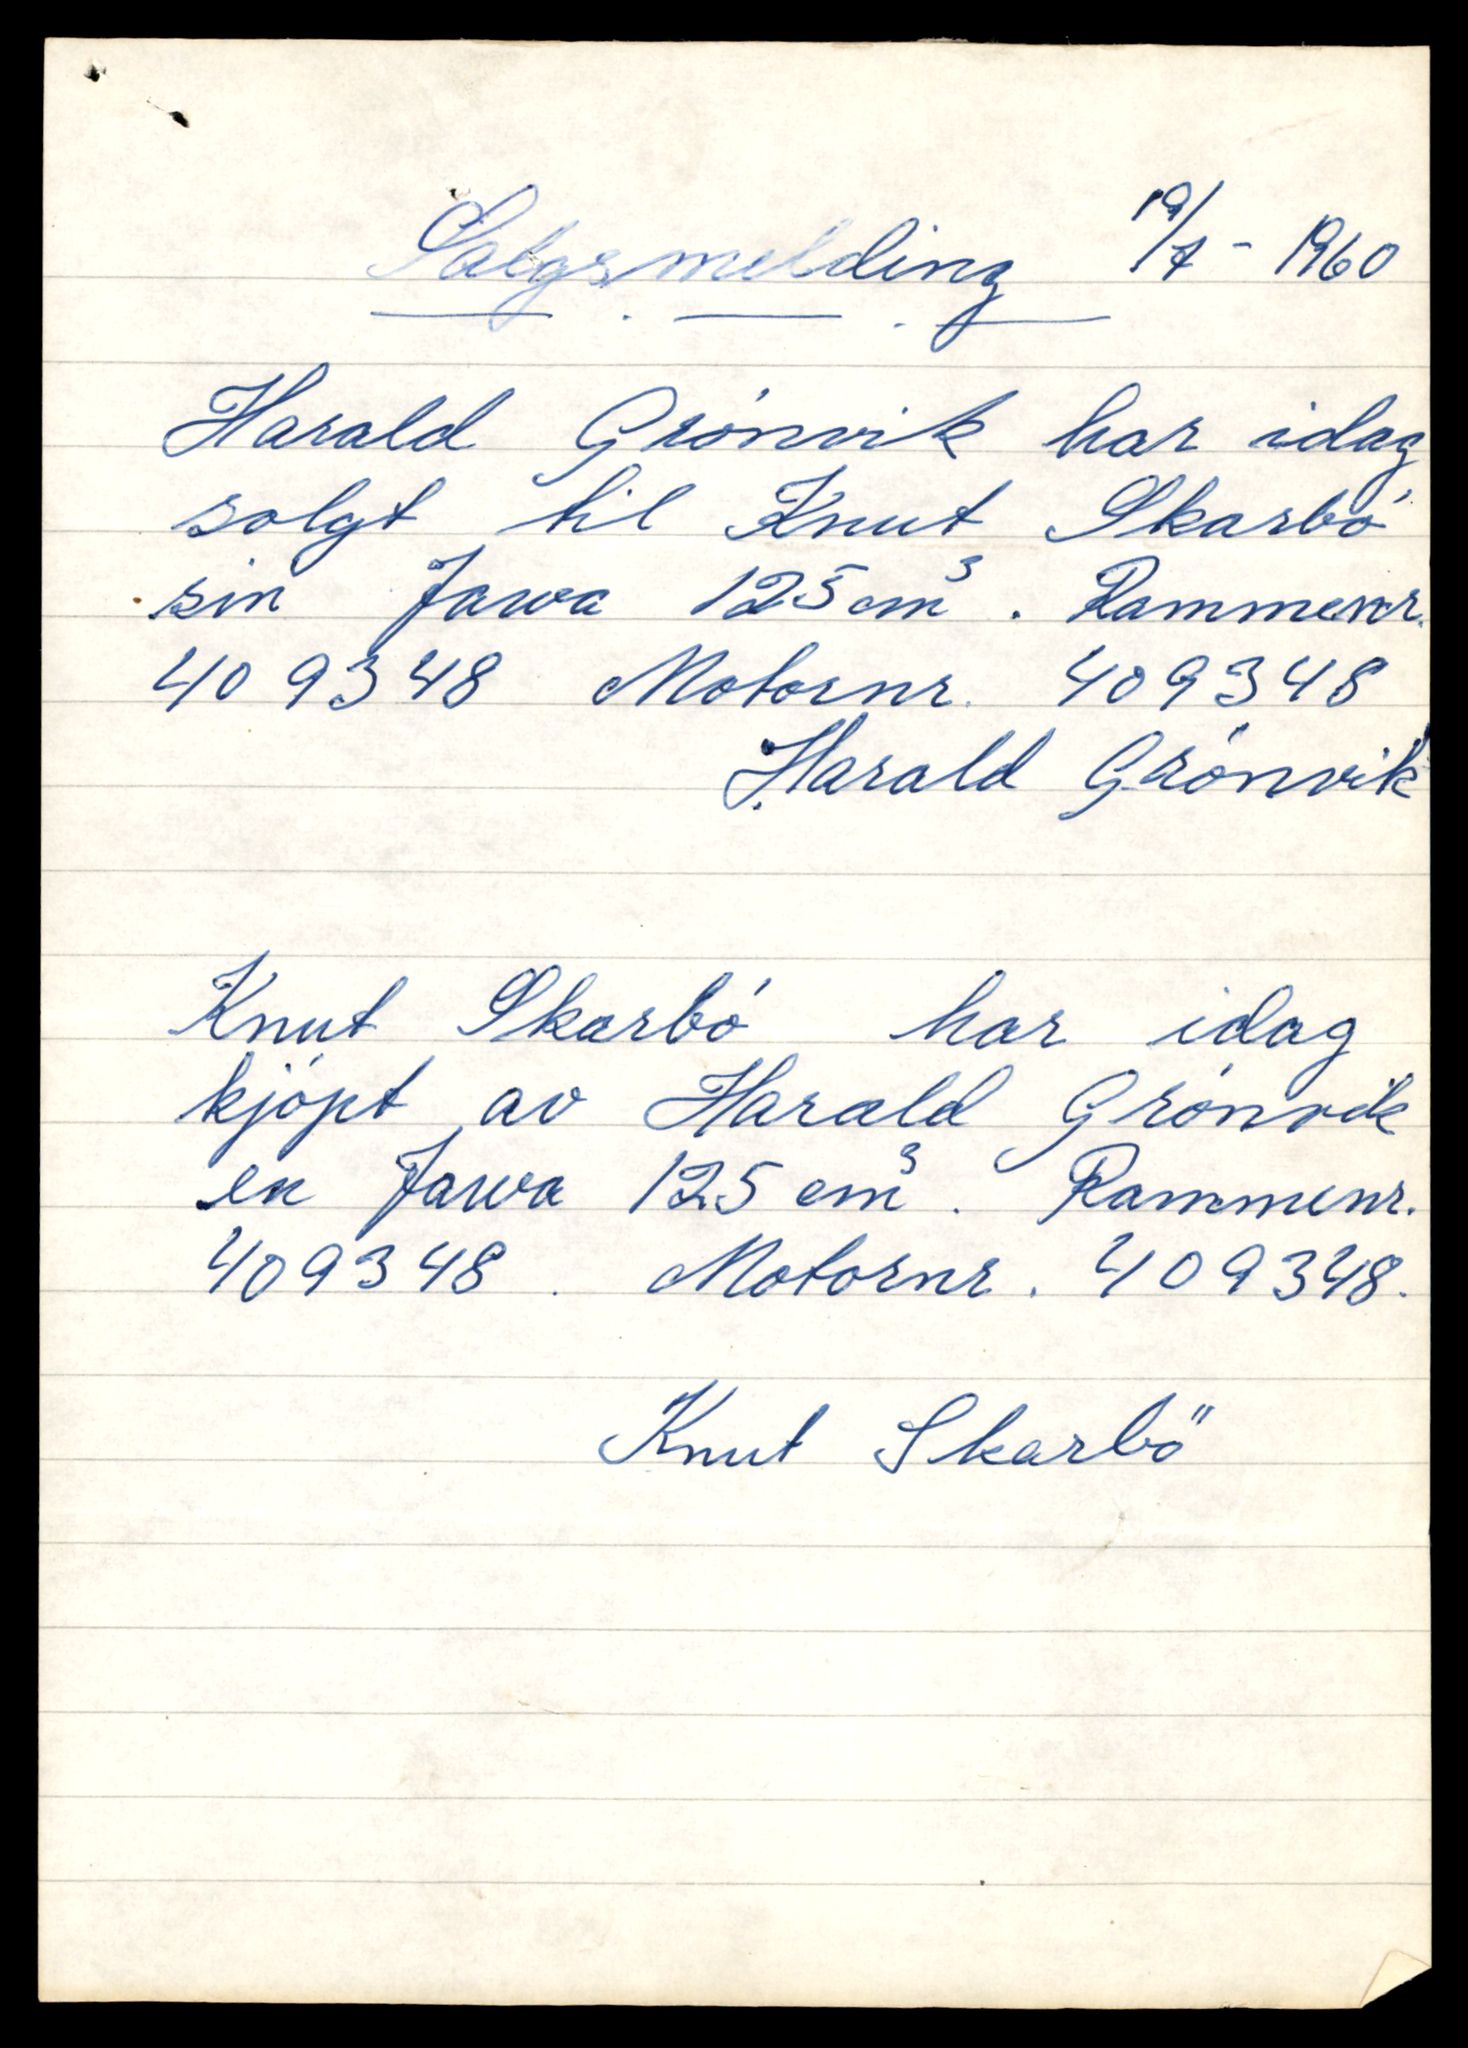 Salgsmelding 19/7 - 1960
Harald Grónvik har idag
solgt til Knut Skarbó
sin Jawa 125 cm³. Rammenr.
409348 Motornr. 409348
Harald Grónvik
Knut Skarbó har idag
kjópt av Harald Grónvik
en Jawa 125 cm³. Rammenr.
409348. Motornr. 409348.
Knut Skarbö